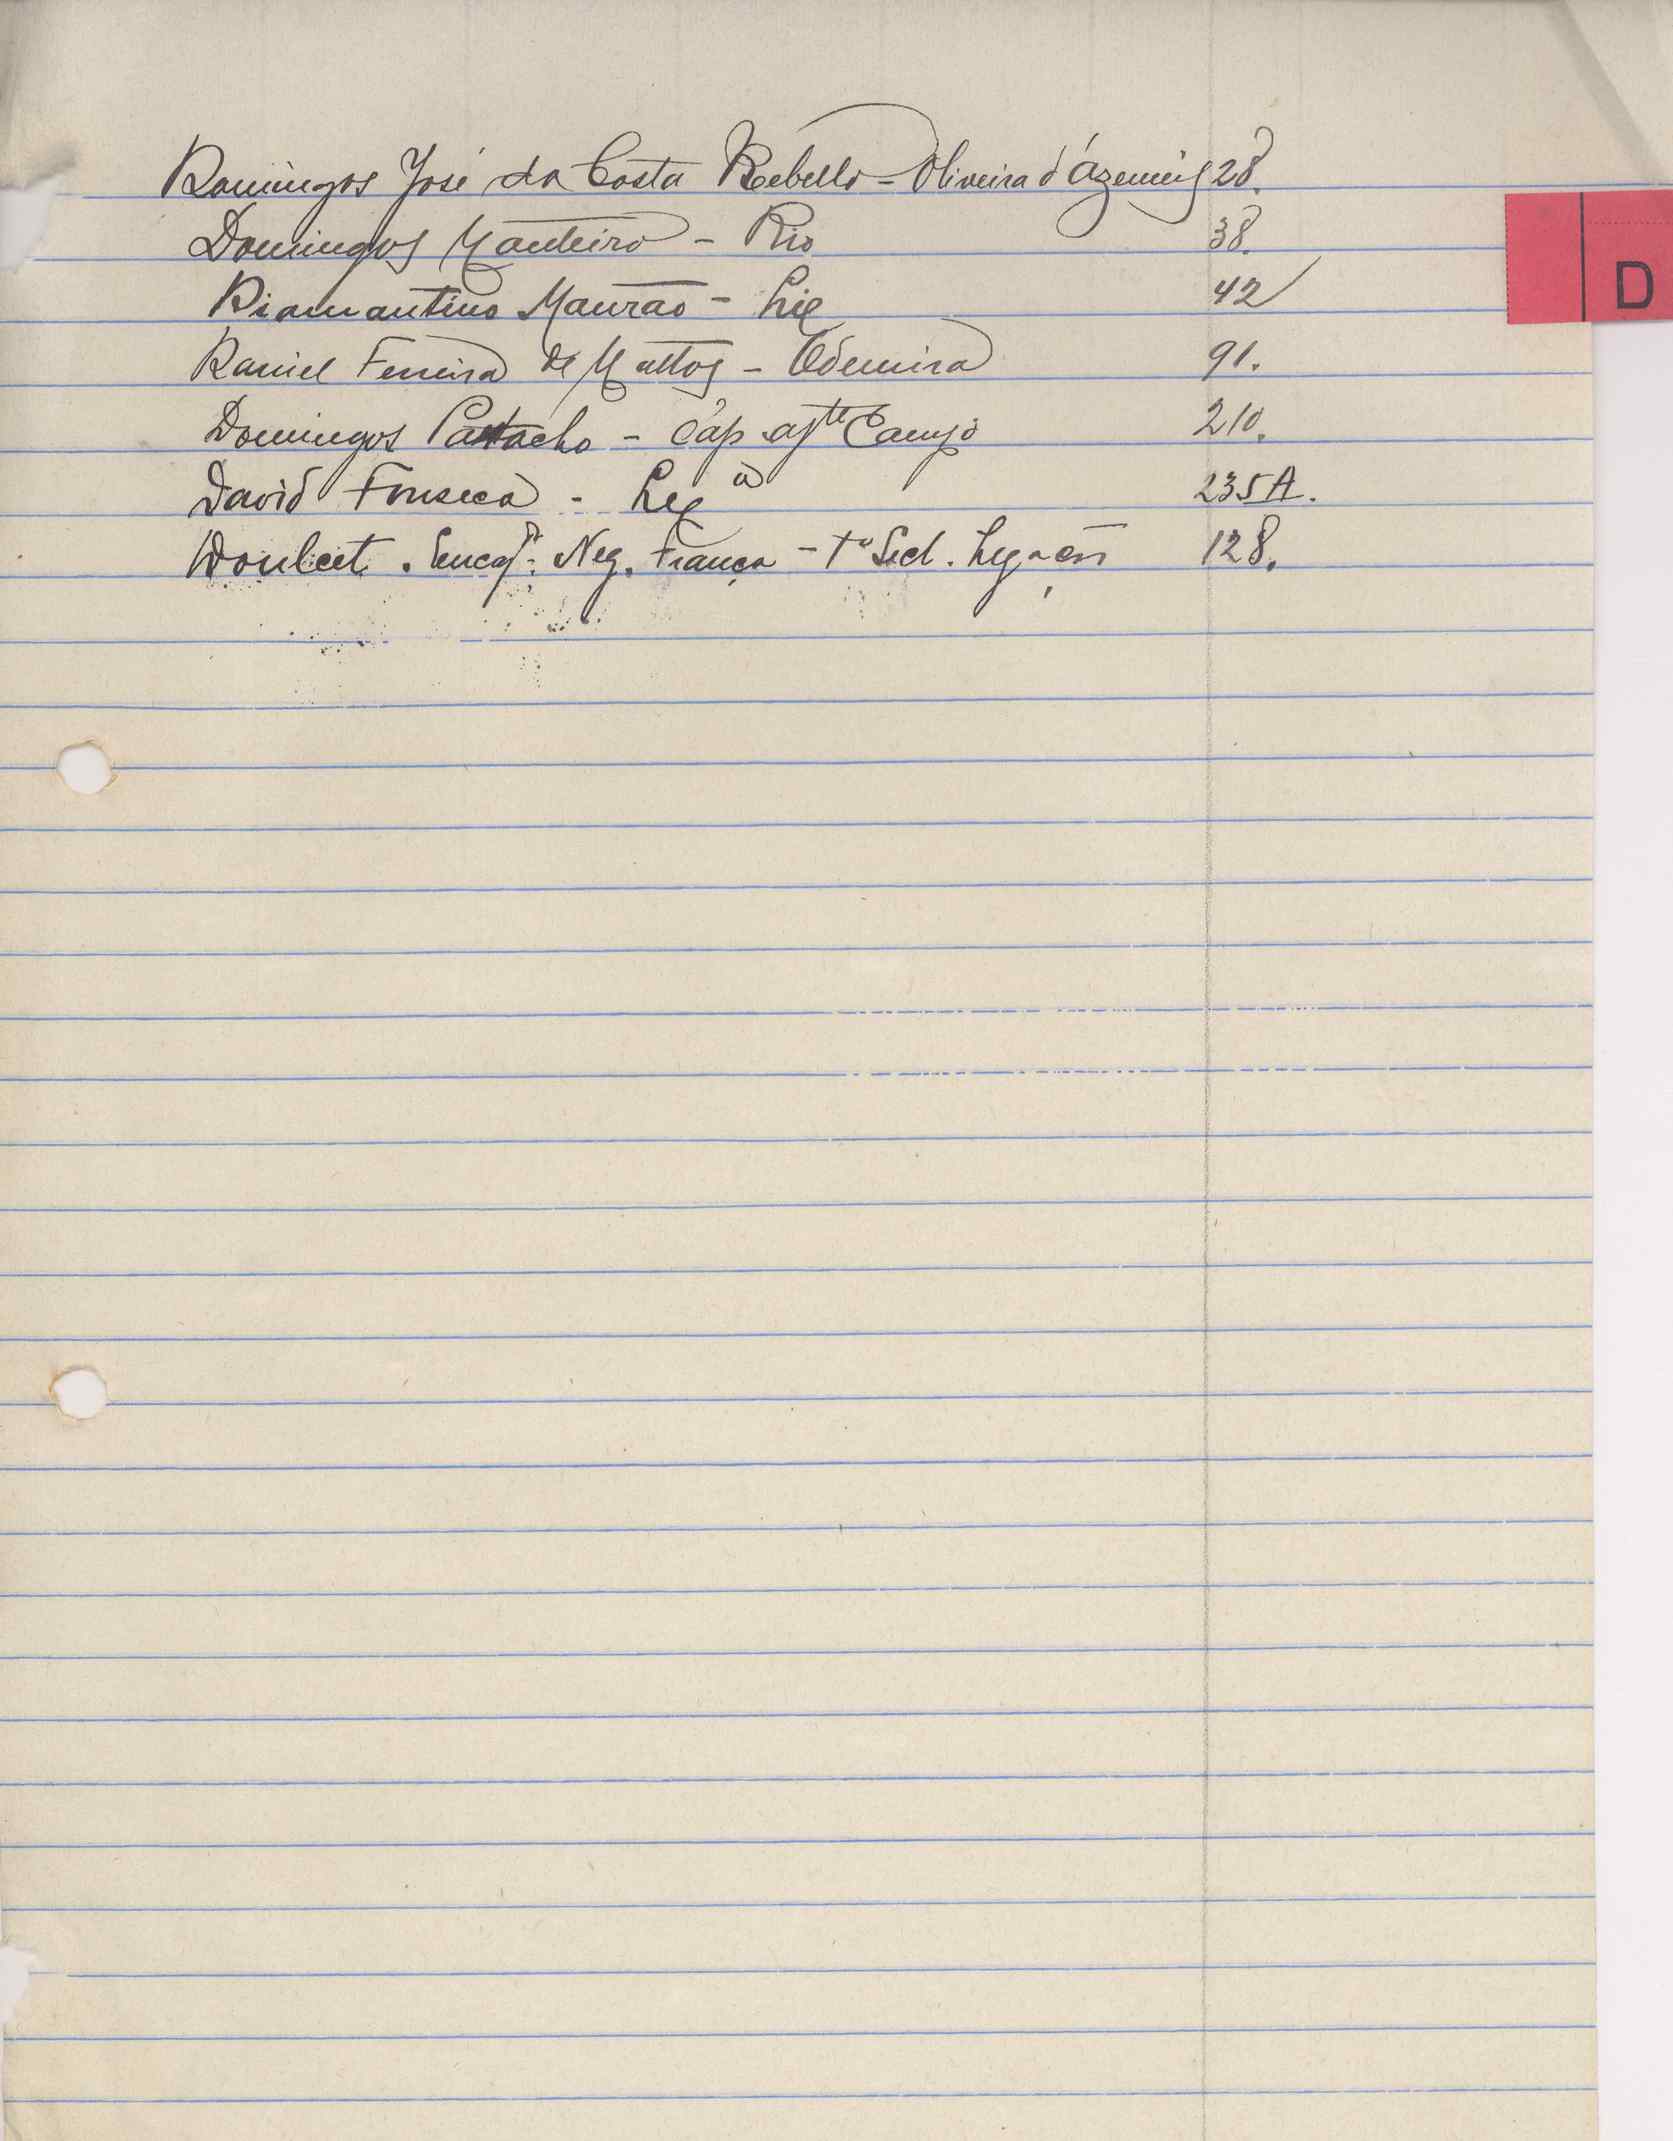 Domingos José da Costa Rebello - Oliveira d'Azemeis 28.
D
Domingos Monteiro - Rio 38.
Diamantino Mourão - 42
Daniel Ferreira de Mattos - Odemira 91.
Domingos Patacho - Cap. Campo 210.
David Fonseca - 235A.
Doulcet. Encogdo Neg. França - 128.